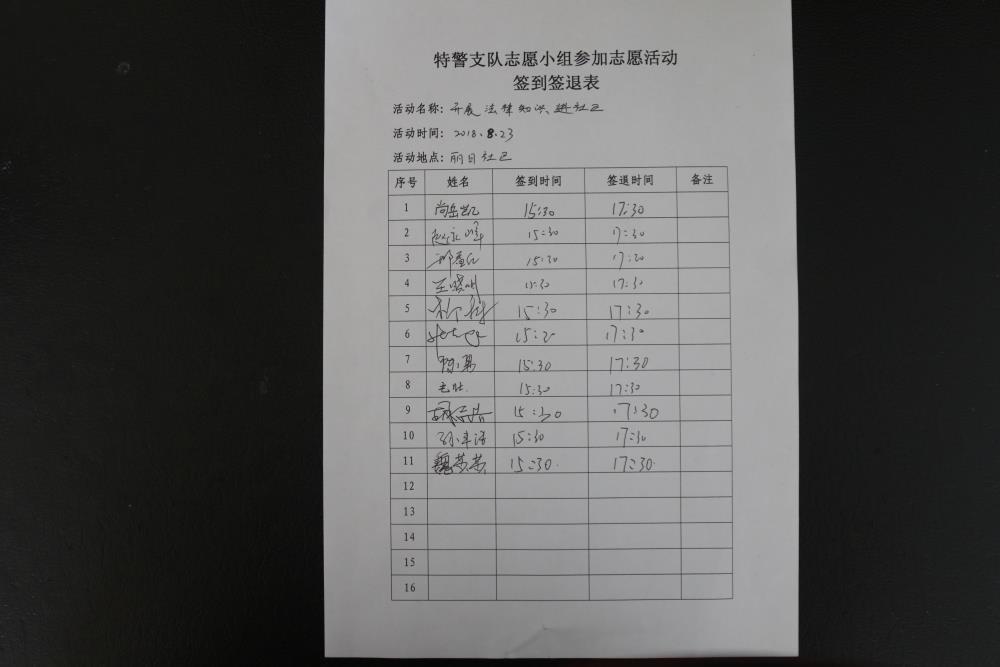 特警支队志愿小组参加志愿活动
签到签退表
活动名称：开展法律知识进社区
活动时间：2018.8.23
活动地点：丽日社区
序号 姓名 签到时间 签退时间 备注
1 尚岳凯 15:30 17:30
2 15:30 17:30
3 15:30 17:30
4 王晓明 15:30 17:30
5 15:30 17:30
6 17:30
7 15:30 17:30
8 15:30 17:30
9 15:30 17:30
10 15:30 17:30
11 魏英英 15:30 17:30
12
13
14
15
16